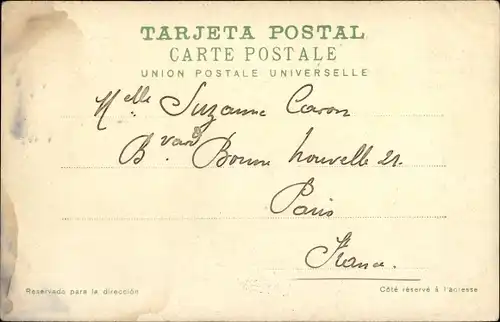 TARJETA POSTAL
CARTE POSTALE
UNION POSTALE UNIVERSELLE
Melle Suzanne Caron
Bvard Bonne nouvelle 21.
Paris
France.
Reservado para la dirección
Côté réservé à l'adresse